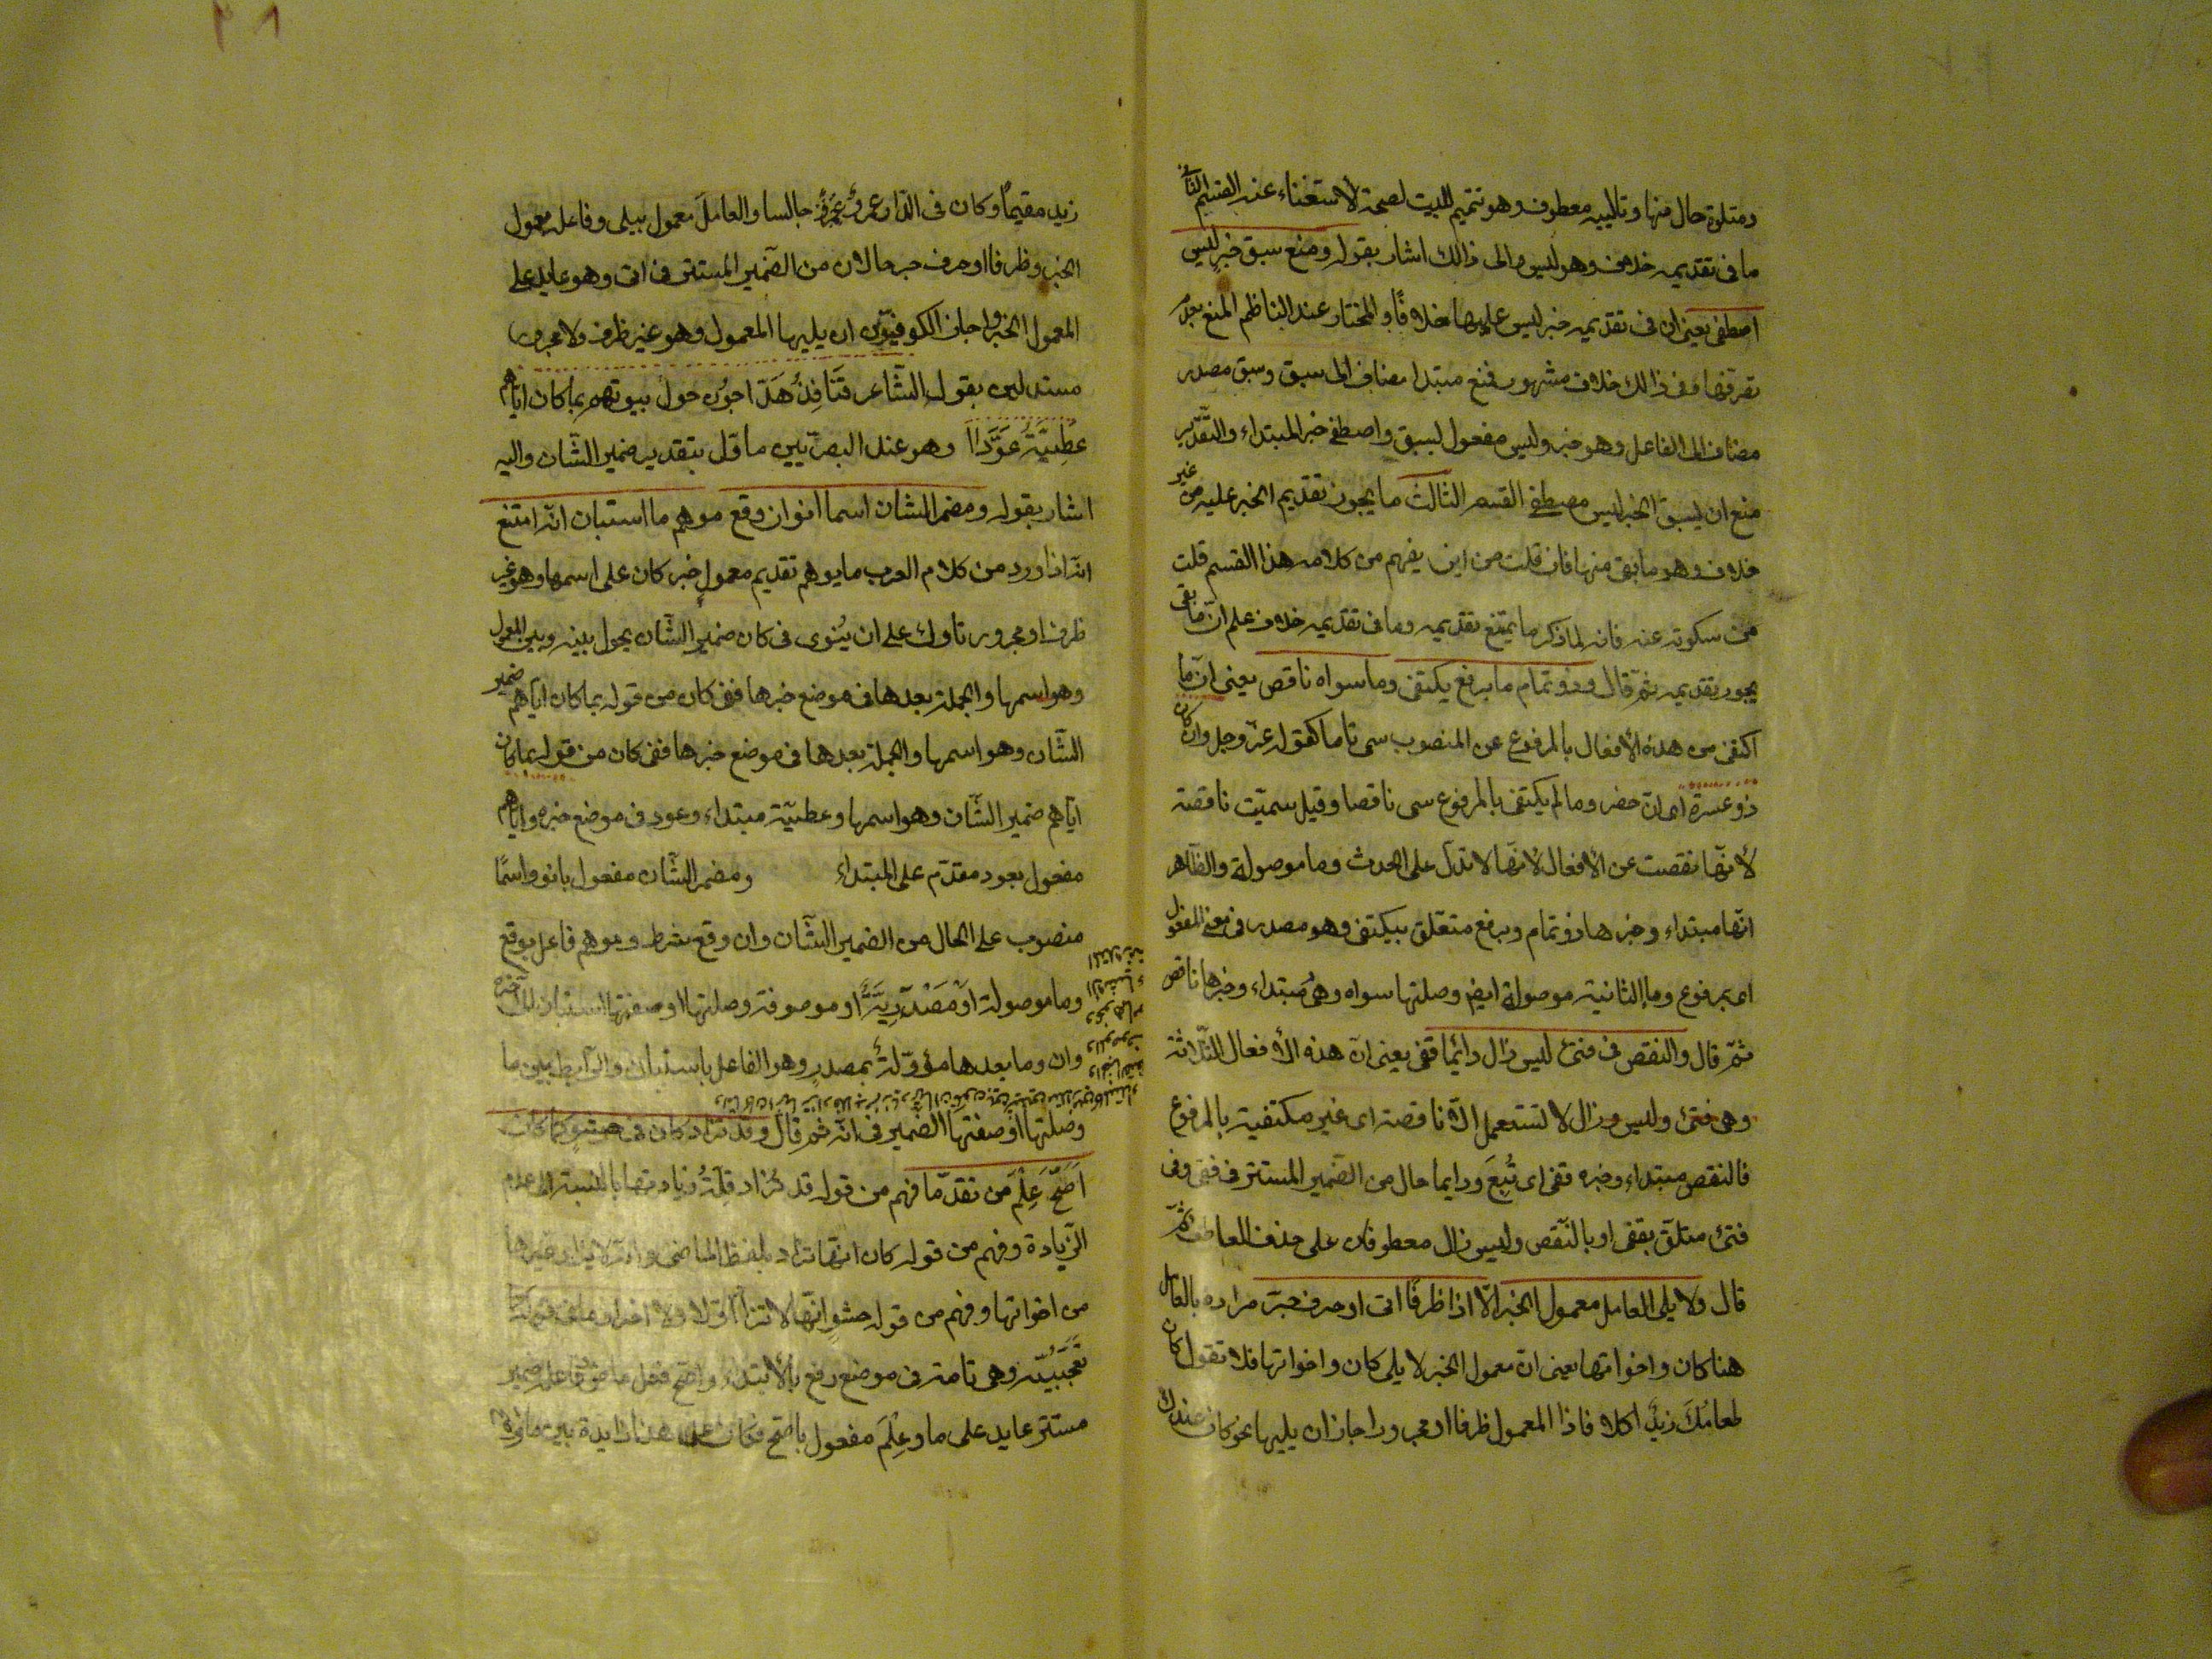 ومتلوة حال منها وتاليه معطوف وهو تتميم للبيت لصحة لأستغناء عنه القسم الثاني
ما فى تقديمه خلاف وهو ليس والى ذالك اشار بقوله ومنع سبق خبر ليس
اصطفى يعنى ان فى تقديمه خبر ليس عليها خلافًا والمختار عند الناظم المنع بعدم
تصرفها وفى ذالك خلاف مشهور فمنع مبتدا مضاف الى سبق وسبق مصدر
مضاف الى الفاعل وهو خبر وليس مفعول لسبق واصطفى خبر المبتداء والتقدير
منع ان يسبق الخبر ليس مصطفى القسم الثالث ما يجوز تقديم الخبر عليه من غير
خلاف وهو ما بقى منها فان قلت من اين يفهم من كلامه هذا القسم قلت
من سكوته عنه فانه لما ذكر ما يمتنع تقديمه وما فى تقديمه خلاف علم ان ما بقى
يجوز تقديمه ثم قال وذو تمام ما برفع يكتفى وما سواه ناقص يعنى ان ما
اكتفى من هذه الأفعال بالمرفوع عن المنصوب سمى تاما كقوله عز وجل وان كان
ذو عسرة اى ان حضر وما لم يكتفى بالمرفوع سمى ناقصا وقيل سميت ناقصة
لأنها نقصت عن الأفعال لأنها لا تدل على الحدث وما موصولة والظاهر
انها مبتداء وخبرها ذو تمام وبرفع متعلق بيكتفى وهو مصدر فى معنى المفعول
اى بمرفوع وما الثانية موصولة ايض وصلتها سواه وهى مبتداء وخبرها ناقص
ثم قال والنقص فى فتئ ليس زال دائما قفى يعنى ان هذه الأفعال الثلاثة
وهى فتئ وليس وزال لا تستعمل الا ناقصة اى غير مكتفية بالمرفوع
فالنقص مبتداء وخبره قفى اى تُبِعَ ودايما حال من الضمير المستتر فى قفى وفى
فتئ متلق بقفى او بالنقص وليس زال معطوفان على حذف العاطف ثم
قال ولا يلى العامل معمول الخبر الا اذا ظرفًا اتى او حرف جر مراده بالعامل
هنا كان واخواتها يعنى ان معمول الخبر لا يلى كان واخواتها فلا تقول كان
طعامُكَ زيدٌ اكلا فاذا المعمول ظرفا او مجرورا جاز ان يليها نحو كان عندك
زيد مقيماً وكان فى الدار عمرو جالسا والعامل معمول بيلى وفاعله معمول
الخبر وظرفا او حرف جر حالان من الضمير المستتر فى اتى وهو عايد على
المعمول الخبر واجاز الكوفيون ان يليها المعمول وهو غير ظرف ولا مجرور
مستدلين بقول الشاعر قنافذ هدّاجون حول بيوتهم بما كان اياهم
عطيّة عوّدا وهو عند البصريين مأول بتقدير ضمير الشان واليه
اشار بقوله ومضمر الشان اسما انو ان وقع موهم ما استبان انه امتنع
انه اذا ورد من كلام العرب ما يوهم تقديم معمول خبر كان على اسمها وهو غير
ظرف او مجرور تاوله على ان يُنوى فى كان ضمير الشان يحول بينه وبين المعمول
وهو اسمها والجملة بعدها فى موضع خبرها ففى كان من قوله بما كان اياهم ضمير
الشان وهو اسمها والجملة بعدها فى موضع خبرها ففى كان من قوله بما كان
اياهم ضمير الشان وهو اسمها وعطية مبتداء وعود فى موضع خبره واياهم
مفعول بعود مقدّم على المبتداء ومضمر الشان مفعول بانو واسمًا
منصوب على الحال من الضمير الشان وان وقع شرط وموهم فاعل بوقع
وما موصولة او مصدرية او موصوفة وصلتها او صفتها استبان الى آخره
وان وما بعدها مؤوّلة بمصدرٍ وهو الفاعل باستبان والرابط بين ما
وصلتها او صفتها الضمير فى انه ثم قال وقد تزاد كان فى حشو كما كان
اصحّ علم من تقدّما فهم من قوله قد تزاد قلة زيادتها بالنسبة الى عدم
الزيادة وفهم من قوله كان انها تزاد بلفظ الماضى وانه لا يزاد غيرها
من اخواتها وفهم من قوله حشو انها لا تزاد اولا ولا اخرا وما فى قوله كما
تعجّبيّة وهى تامة فى موضع رفع بالأبتداء واصح فعل ماض وفاعله ضمير
مستتر عايد على ما وعِلمَ مفعول باصح فكان على هذا زايدة بين ما